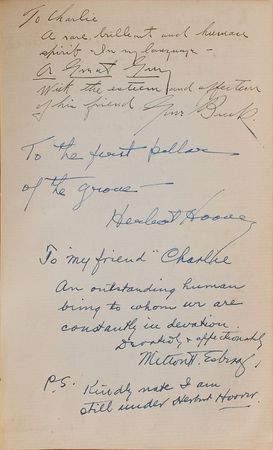 To Charlie
A rare brilliant and human
spirit - In my language -
A Great Guy
With the esteem and affection
of his friend Buck.
To the first pillar
of the grove -
Herbert Hoover
To "my friend" Charlie
An outstanding human
being to whom we are
constantly in devotion.
Devotedly & affectionately
Milton H.
P.S. Kindly note I am
still under Herbert Hoover.